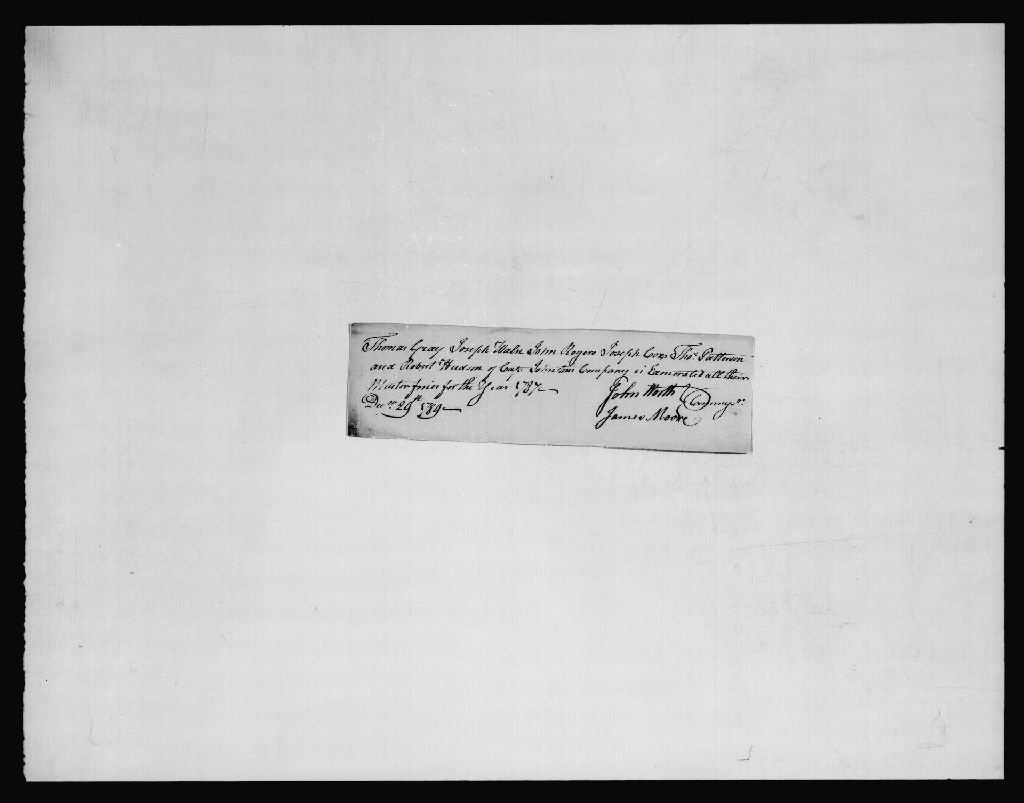 Thomas Gray Joseph Waln John Rogers Joseph Cox Thos Patterson
and Robert Hudson of Capt. Johnston Company is Exenorated all their
Muster fines for the Year 1787
Decr 29th 1789
John Worth
James Moore